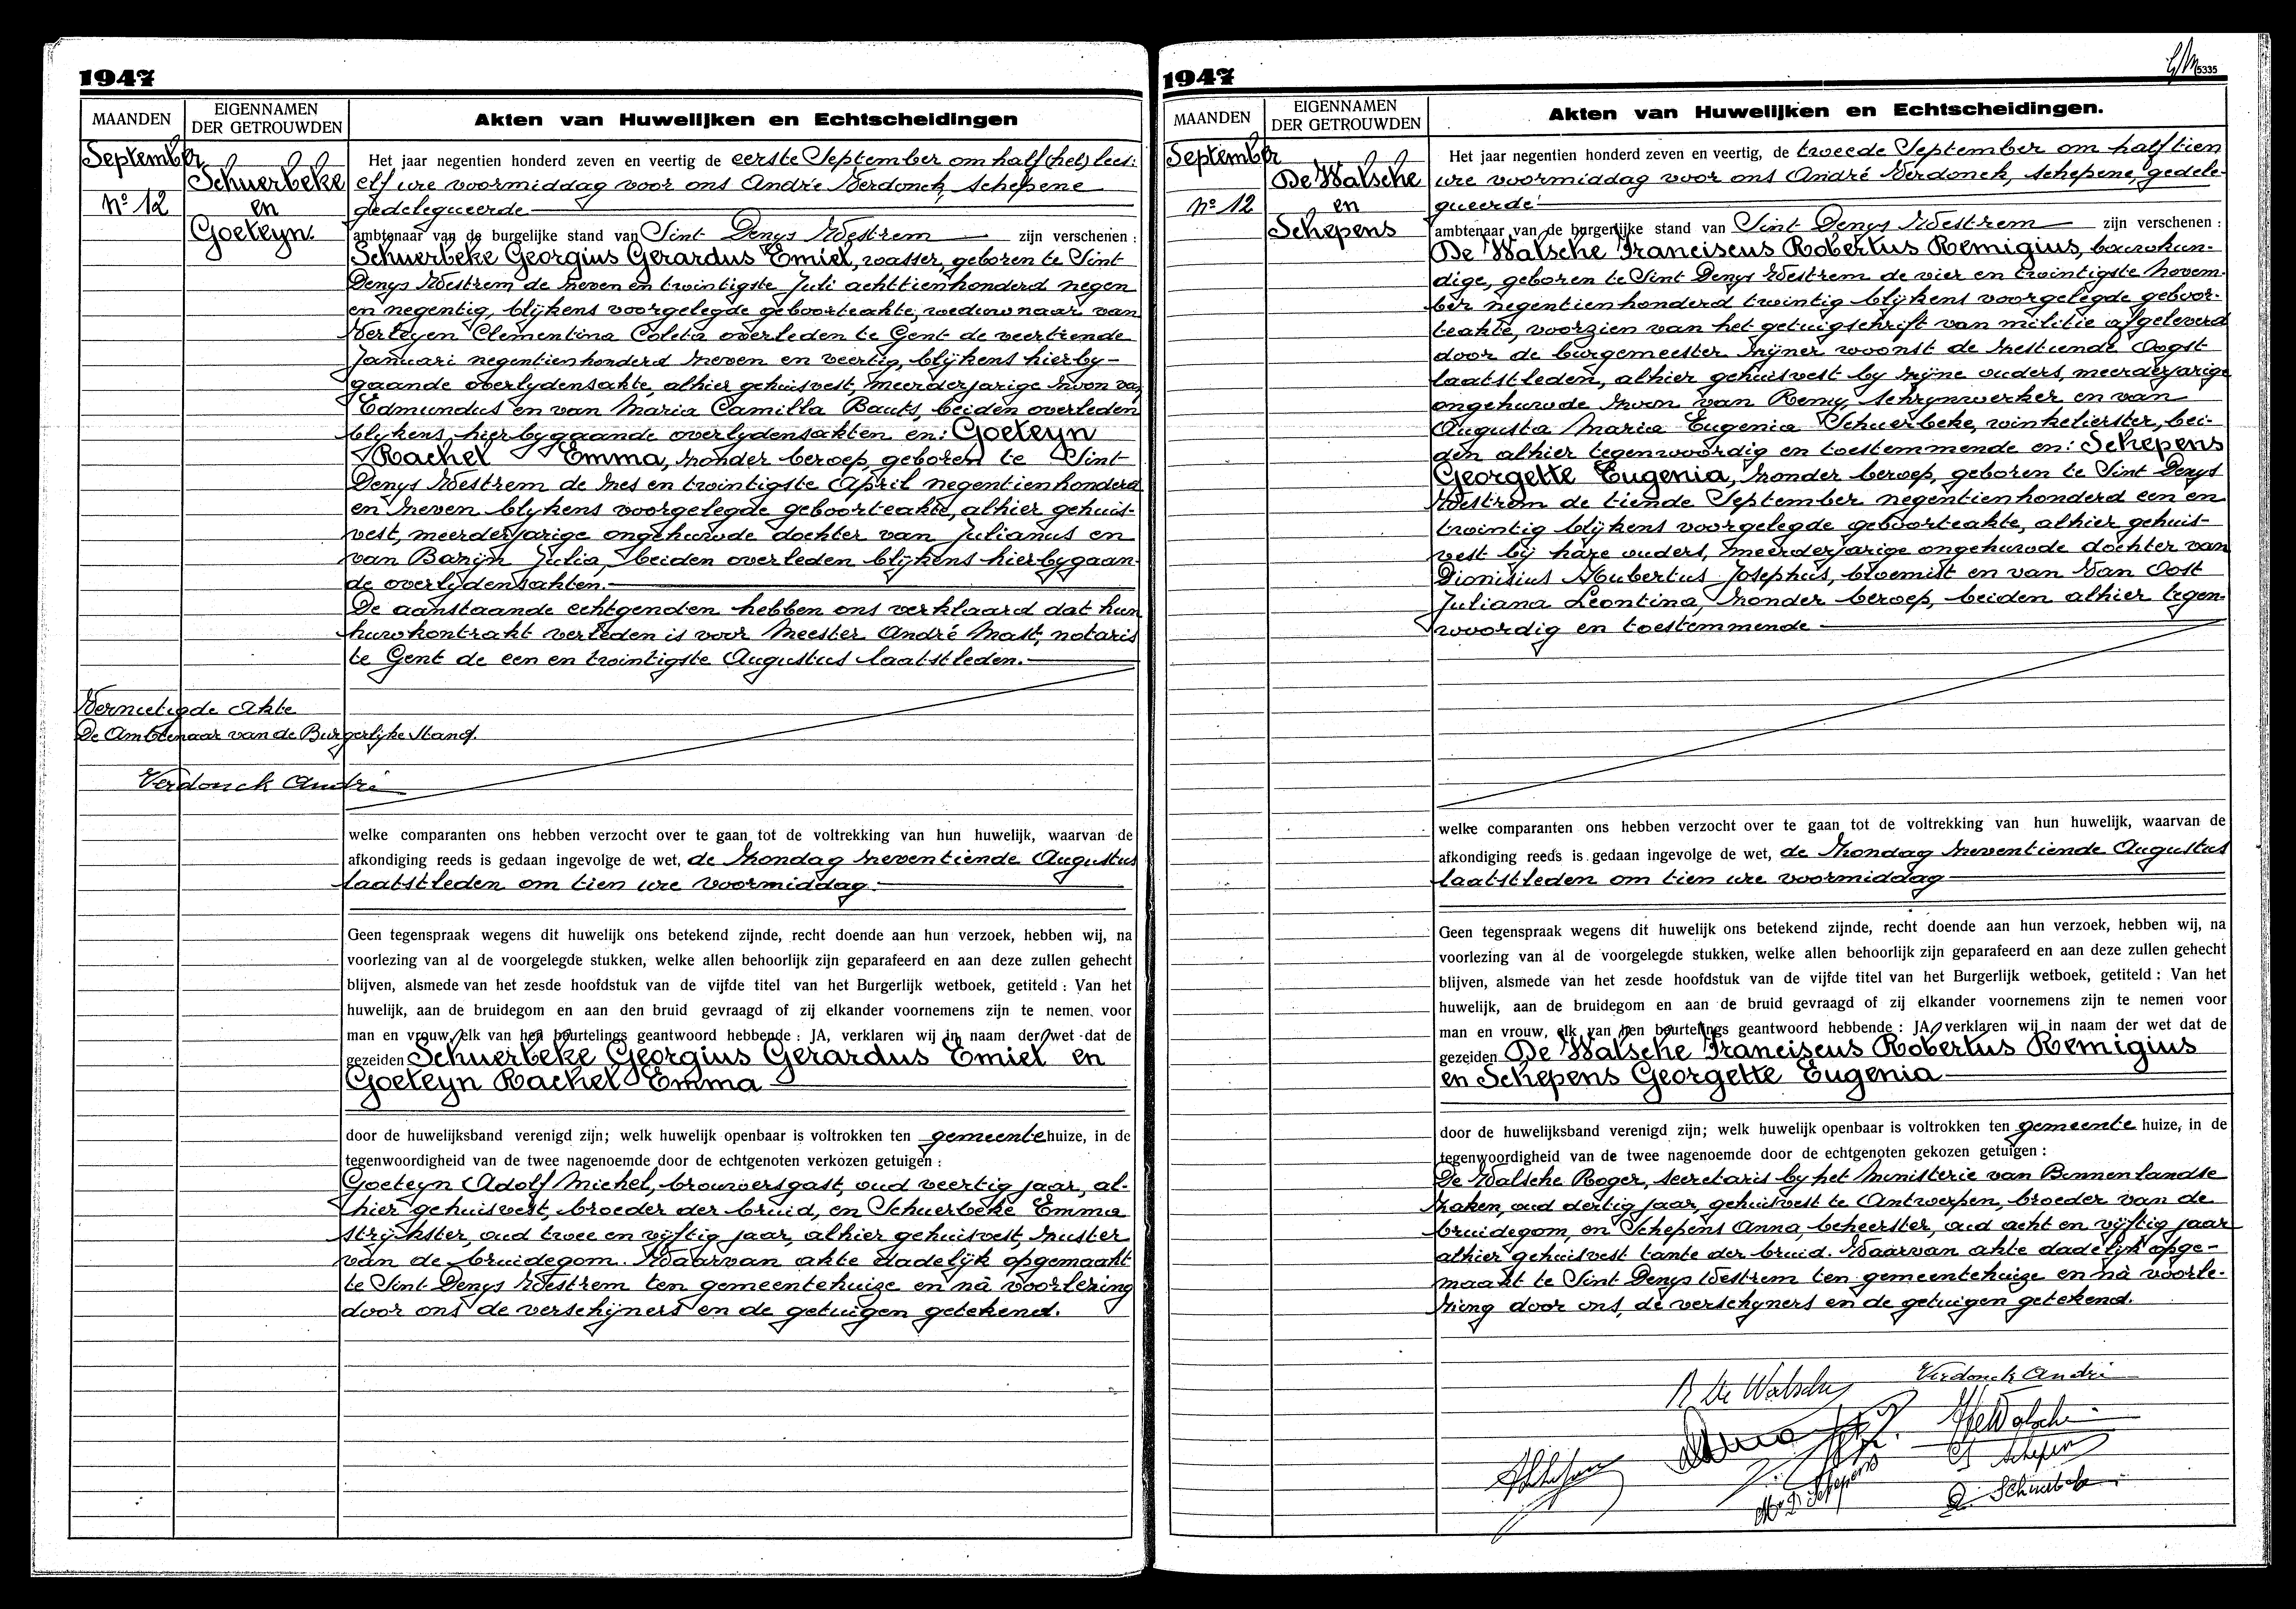 1947
MAANDEN
EIGENNAMEN
DER GETROUWDEN
Akten van Huwelijken en Echtscheidingen
September
Nº 12
Schuerbeke
en
Goeteyn.
Het jaar negentien honderd zeven en veertig de eerste September om half (het) lees:
elf ure voormiddag voor ons André Verdonck, schepene
gedelegueerde
ambtenaar van de burgelijke stand van Sint Denys Westrem zijn verschenen :
Schuerbeke Georgius Gerardus Emiel, wasser, geboren te Sint
Denys Westrem de zeven en twintigste Juli achttienhonderd negen
en negentig, blijkens voorgelegde geboorteakte, weduwnaar van
Verleyen Clementina Coleta overleden te Gent de veertiende
Januari negentienhonderd zeven en veertig, blijkens hierby-
gaande overlydensakte, alhier gehuisvest, meerderjarige zoon van
Edmundus en van Maria Camilla Bauts, beiden overleden
blykens hierbygaande overlydensakten en: Goeteyn
Rachel Emma, zonder beroep, geboren te Sint
Denys Westrem de zes en twintigste April negentienhonderd
en zeven blykens voorgelegde geboorteakte, alhier gehuis-
vest, meerderjarige ongehuwde dochter van Julianus en
van Barijn Julia, beiden overleden blijkens hierbygaan-
de overlydensakten.
De aanstaande echtgenden hebben ons verklaard dat hun
huwkontrakt verleden is voor Meester André Mast, notaris
te Gent de een en twintigste Augustus laatstleden.
Vernietigde Akte
De Ambtenaar van de Burgerlyke Stand.
Verdonck André
welke comparanten ons hebben verzocht over te gaan tot de voltrekking van hun huwelijk, waarvan de
afkondiging reeds is gedaan ingevolge de wet, de Zondag zeventiende Augustus
laatstleden om tien ure voormiddag.
Geen tegenspraak wegens dit huwelijk ons betekend zijnde, recht doende aan hun verzoek, hebben wij, na
voorlezing van al de voorgelegde stukken, welke allen behoorlijk zijn geparafeerd en aan deze zullen gehecht
blijven, alsmede van het zesde hoofdstuk van de vijfde titel van het Burgerlijk wetboek, getiteld : Van het
huwelijk, aan de bruidegom en aan den bruid gevraagd of zij elkander voornemens zijn te nemen voor
man en vrouw, elk van hen beurtelings geantwoord hebbende : JA, verklaren wij in naam der wet dat de
gezeiden Schuerbeke Georgius Gerardus Emiel en
Goeteyn Rachel Emma
door de huwelijksband verenigd zijn; welk huwelijk openbaar is voltrokken ten gemeentehuize, in de
tegenwoordigheid van de twee nagenoemde door de echtgenoten verkozen getuigen :
Goeteyn Adolf Michel, brouwersgast, oud veertig jaar, al-
hier gehuisvest, broeder der bruid, en Schuerbeke Emma
strijkster, oud twee en vijftig jaar, alhier gehuisvest, zuster
van de bruidegom. Waarvan akte dadelijk opgemaakt
te Sint Denys Westrem ten gemeentehuize en nà voorlezing
door ons de verschijners en de getuigen getekend.
1947
5335
MAANDEN
EIGENNAMEN
DER GETROUWDEN
Akten van Huwelijken en Echtscheidingen.
September
Nº 12
De Walsche
en
Schepens
Het jaar negentien honderd zeven en veertig, de tweede September om half tien
ure voormiddag voor ons André Verdonck, schepene, gedele-
gueerde
ambtenaar van de burgerlijke stand van Sint Denys Westrem zijn verschenen :
De Walsche Franciscus Robertus Remigius, bouwkun-
dige, geboren te Sint Denys Westrem de vier en twintigste Novem-
ber negentienhonderd twintig blijkens voorgelegde geboor-
teakte, voorzien van het getuigschrift van militie afgeleverd
door de burgemeester zijner woonst de zestiende Oogst
laatstleden, alhier gehuisvest by zijne ouders, meerderjarige
ongehuwde zoon van Remy, schrynwerker en van
Augusta Maria Eugenia Schuerbeke, winkelierster, bei-
den alhier tegenwoordig en toestemmende en: Schepens
Georgette Eugenia, zonder beroep, geboren te Sint Denys
Westrem de tiende September negentienhonderd een en
twintig blijkens voorgelegde geboorteakte, alhier gehuis-
vest bij hare ouders, meerderjarige ongehuwde dochter van
Dionisius Hubertus Josephus, bloemist en van Van Oost
Juliana Leontina, zonder beroep, beiden alhier tegen-
woordig en toestemmende
welke comparanten ons hebben verzocht over te gaan tot de voltrekking van hun huwelijk, waarvan de
afkondiging reeds is gedaan ingevolge de wet, de Zondag zeventiende Augustus
laatstleden om tien ure voormiddag
Geen tegenspraak wegens dit huwelijk ons betekend zijnde, recht doende aan hun verzoek, hebben wij, na
voorlezing van al de voorgelegde stukken, welke allen behoorlijk zijn geparafeerd en aan deze zullen gehecht
blijven, alsmede van het zesde hoofdstuk van de vijfde titel van het Burgerlijk wetboek, getiteld : Van het
huwelijk, aan de bruidegom en aan de bruid gevraagd of zij elkander voornemens zijn te nemen voor
man en vrouw, elk van hen beurtelings geantwoord hebbende : JA, verklaren wij in naam der wet dat de
gezeiden De Walsche Franciscus Robertus Remigius
en Schepens Georgette Eugenia
door de huwelijksband verenigd zijn; welk huwelijk openbaar is voltrokken ten gemeente huize, in de
tegenwoordigheid van de twee nagenoemde door de echtgenoten gekozen getuigen :
De Walsche Roger, secretaris by het Ministerie van Binnenlandse
zaken, oud dertig jaar, gehuisvest te Antwerpen, broeder van de
bruidegom, en Schepens Anna, beheerster, oud acht en vijftig jaar
alhier gehuisvest tante der bruid. Waarvan akte dadelijk opge-
maakt te Sint Denys Westrem ten gemeentehuize en nà voorle-
zing door ons, de verschyners en de getuigen getekend.
Verdonck André
R De Walsche
De Walsche
G Schepens
A Schepens
D. Schepens
Schuerbeke